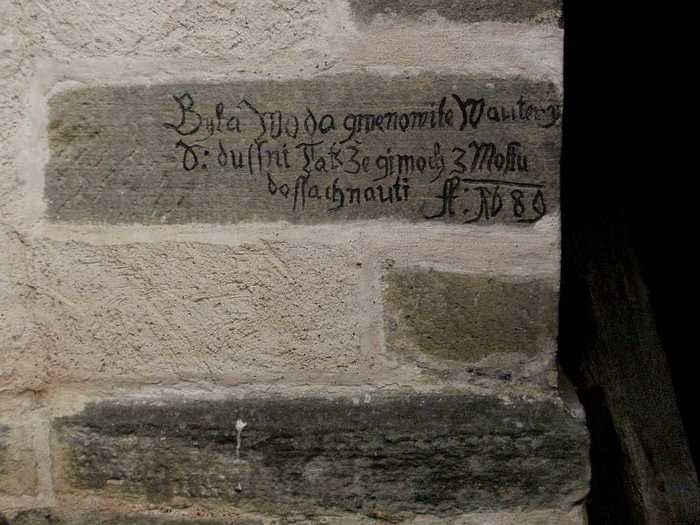 Byla Woda gmenowite W autery
D: duſſni Tak Ze gi moch z Moſtu
doſſachnauti